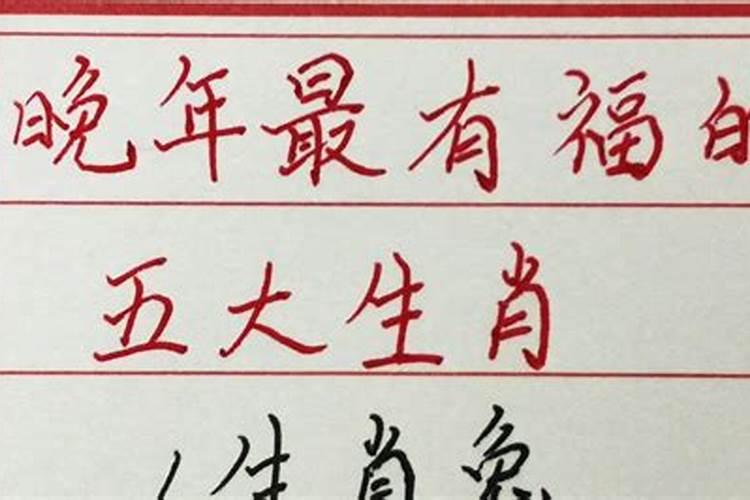 晚年最有福的
五大生肖
1生肖兔